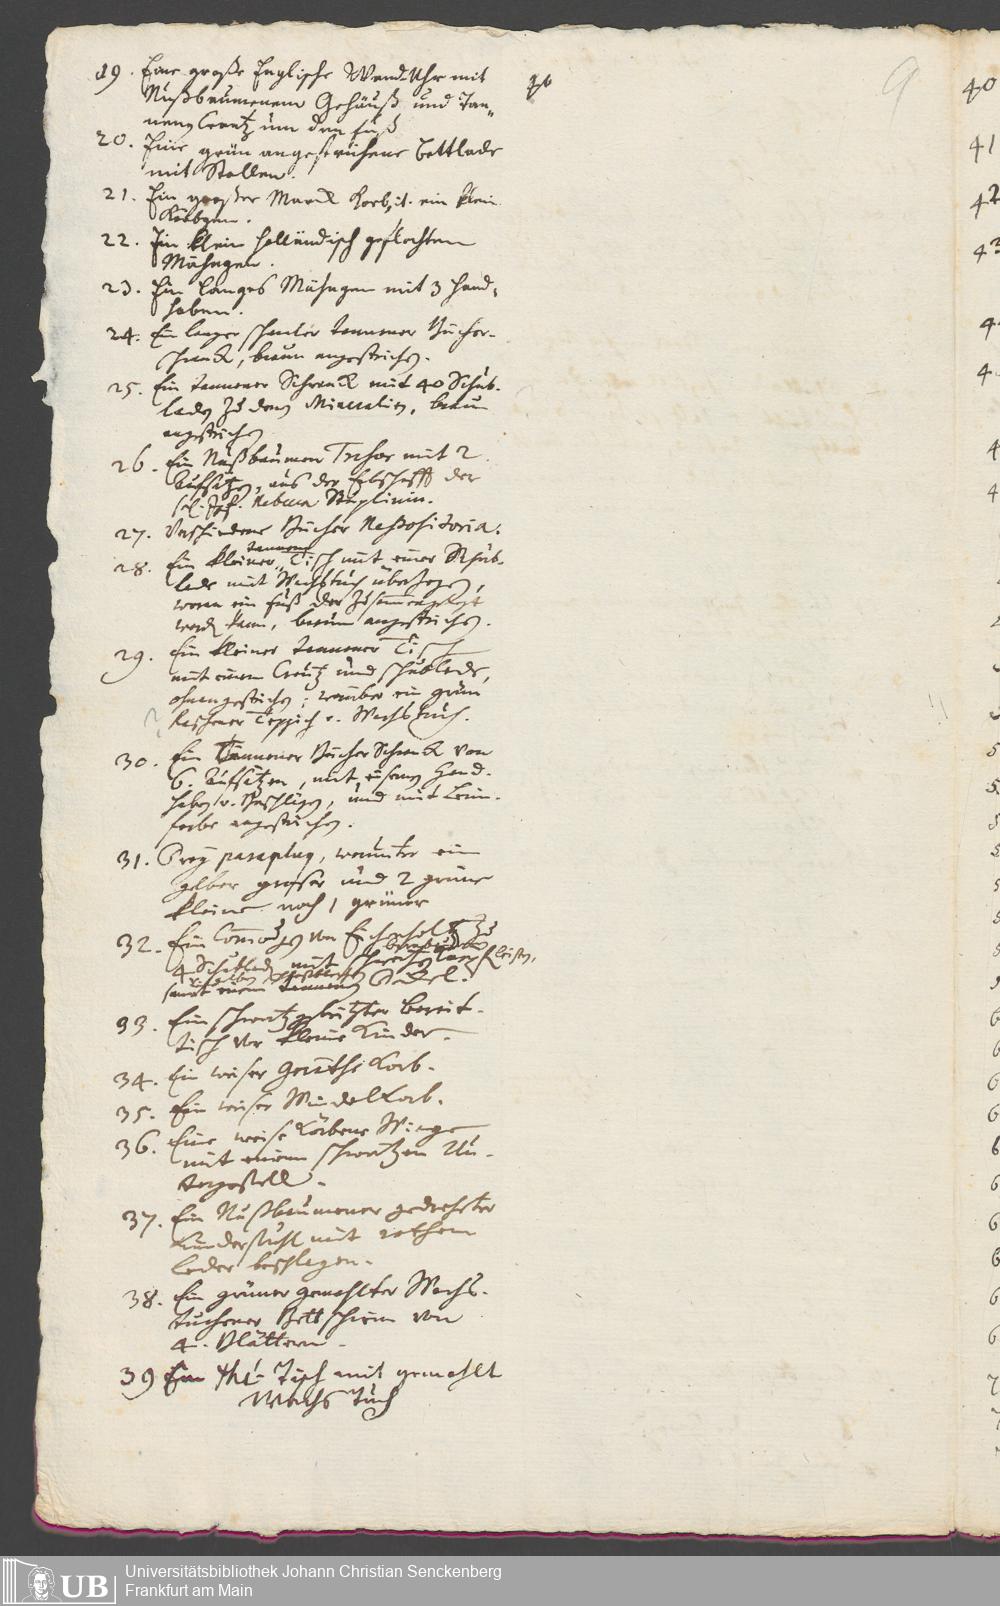 19. Eine große Englische Wand Uhr mit
Nußbaumenem Gehäuß und Tan=
nenen Crantz um den fuß
20. Eine grün angestrichene Bettlade
mit Stollen.
21. Ein großer Marck Korb, it. ein klein
Körbgen.
22. Ein klein holländisch geflochten
Mähngen.
23. Ein langes Mähngen mit 3 Hand=
haben.
24. Ein langer schmaler tannener Bücher-
schranck, braun angestrichen.
25. Ein tannener Schranck mit 40 Schub-
laden zu denen Mineralien, braun
angestrichen
26. Ein Nußbaumen Tresor mit 2
Aufsätzen, aus der Erbschafft der
sel. Jgf. Rebecca
27. Verschiedene Bücher Repositoria.
28. Ein kleiner tannener Tisch mit einer Schub-
lade mit Wachstuch überzogen,
woran ein fuß der zusammengelegt
werden kann, braun angestrichen.
29. Ein kleiner tannener Tisch
mit einem Creutz und schublade,
ohnangestrichen; worüber ein grün
Teppich v. Wachstuch.
30. Ein Tannener Bücher Schranck von
6. Aufsätzen, mit eisern Hand-
haben v. Beschlägen, und mit Leim-
farbe angestrichen.
31. Drey parapluy, worunter ein
gelber großer und 2 grüne
kleine noch 1 grüner
32. Ein von Eichenholtz zu
4 Schubladen mit schwartzen Leisten,
samt einem tannenen Deckel.
33. Ein schwartz gebeitzter
tisch vor kleine Kinder.
34. Ein weiser Geräthe Korb.
35. Ein weiser Windel Korb.
36. Eine weise Körbene Wiege
mit einem schwartzen Un-
tergestell.
37. Ein Nußbaumener gedrehter
Kinderstuhl mit rothem
Leder beschlagen.
38. Ein grüner gemahlter Wachs-
tuchener Bettschirm von
4. Blättern.
39 Ein thé Tisch mit gemahlt
Wachs Tuch
40
9
40
41
42
Universitätsbibliothek Johann Christian Senckenberg
Frankfurt am Main
UB